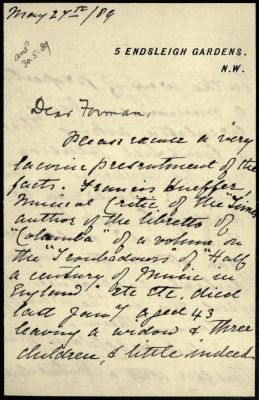 May 27th/89
ansd
30.5.89
5 ENDSLEIGH GARDENS.
N.W.
Dear Forman,
Please excuse a very
laconic presentment of the
facts. Francis Hueffer,
Musical Critic of the Times
author of the libretto of
"Colomba" of a volume on
the "Troubadours" of "Half
a century of Music in
England" etc etc, died
last Jany aged 43
leaving a widow & three
children, & little indeed